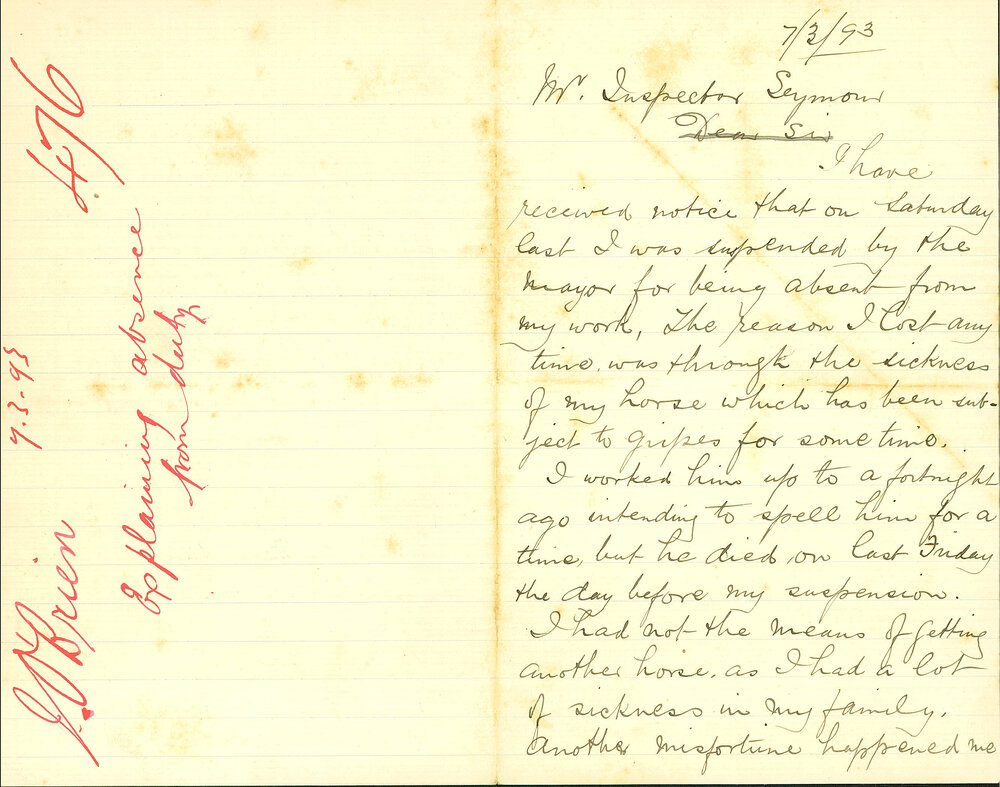 J. O'Brien 7.3.93 476
Explaining absence
from duty
7/3/93
Mr. Inspector Seymour
Dear Sir
I have
received notice that on Saturday
last I was suspended by the
mayor for being absent from
my work, The reason I lost any
time, was through the sickness
of my horse which has been sub-
ject to gripes for some time.
I worked him up to a fortnight
ago intending to spell him for a
time, but he died on last Friday
the day before my suspension.
I had not the means of getting
another horse. as I had a lot
of sickness in my family.
another misfortune happened me